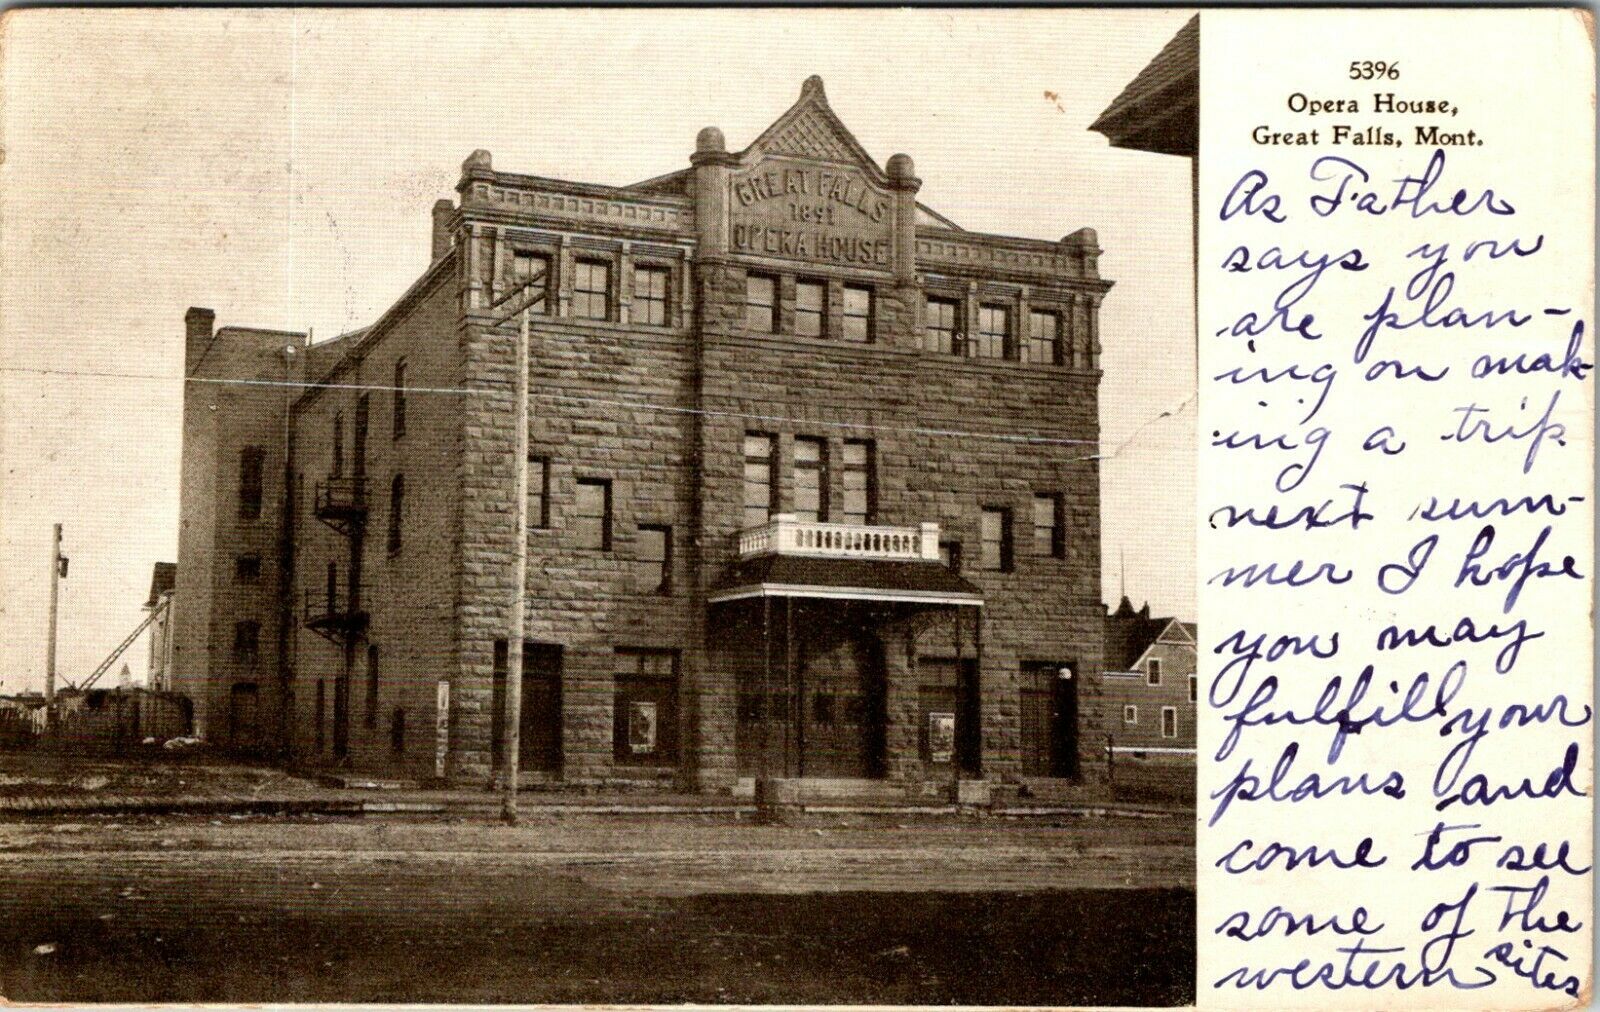 GREAT FALLS
1891
OPERA HOUSE
5396
Opera House,
Great Falls, Mont.
As Father
says you
are plan-
ing on mak-
ing a trip
next sum-
mer I hope
you may
fulfill your
plans and
come to see
some of the
western sites